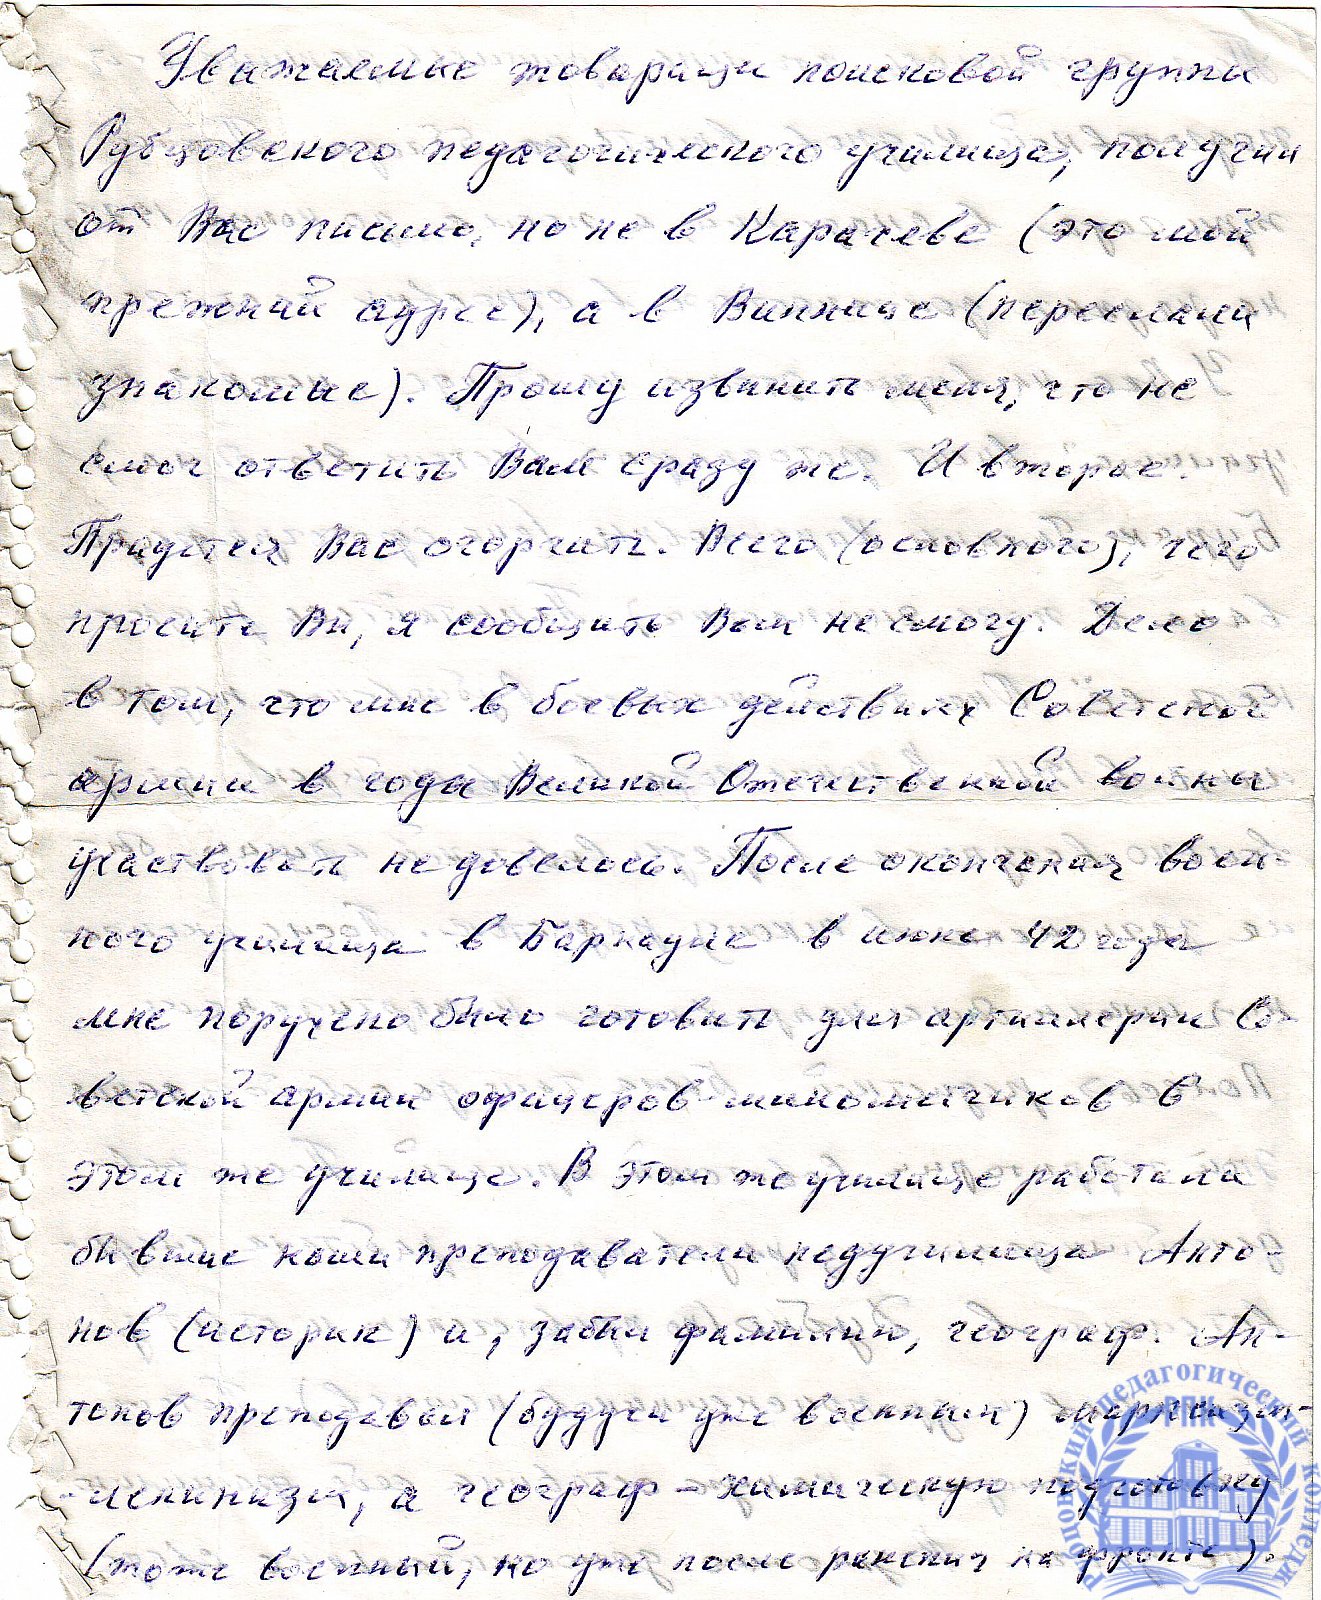 Уважаемые товарищи поисковой группы
Рубцовского педагогического училища, получил
от Вас письмо, но не в Карачеве (это мой
прежний адрес), а в Виннице (переслали
знакомые). Прошу извинить меня, что не
смог ответить Вам сразу же. И второе.
Придется Вас огорчить. Всего (основного), чего
просите Вы, я сообщить Вам не смогу. Дело
в том, что мне в боевых действиях Советской
армии в годы Великой Отечественной войны
участвовать не довелось. После окончания воен-
ного училища в Барнауле в июне 42 года
мне поручено было готовить для артиллерии Со-
ветской армии офицеров-минометчиков в
этом же училище. В этом же училище работали
бывшие наши преподаватели педучилища Анто-
нов (историк) и, забыл фамилию, географ. Ан-
тонов преподавал (будучи уже военным) марксизм-
-ленинизм, а географ – химическую подготовку
(тоже военный, но уже после ранения на фронте).
Рубцовский педагогический колледж
РПК